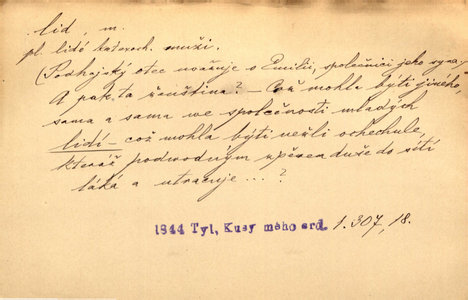 lid, m.
pl. lidé katexoch. muži.
(Podhajský otec uvažuje o Emilii, společnici jeho syna)
A pak ta ženština? – Což mohla býti jiného,
sama a sama ve společnosti mladých
lidí – což mohla býti nežli ochechule,
kteráž podvodným zpěvem duše do sítí
láká a utracuje...?
1844 Tyl, Kusy mého srd. 1. 307, 18.